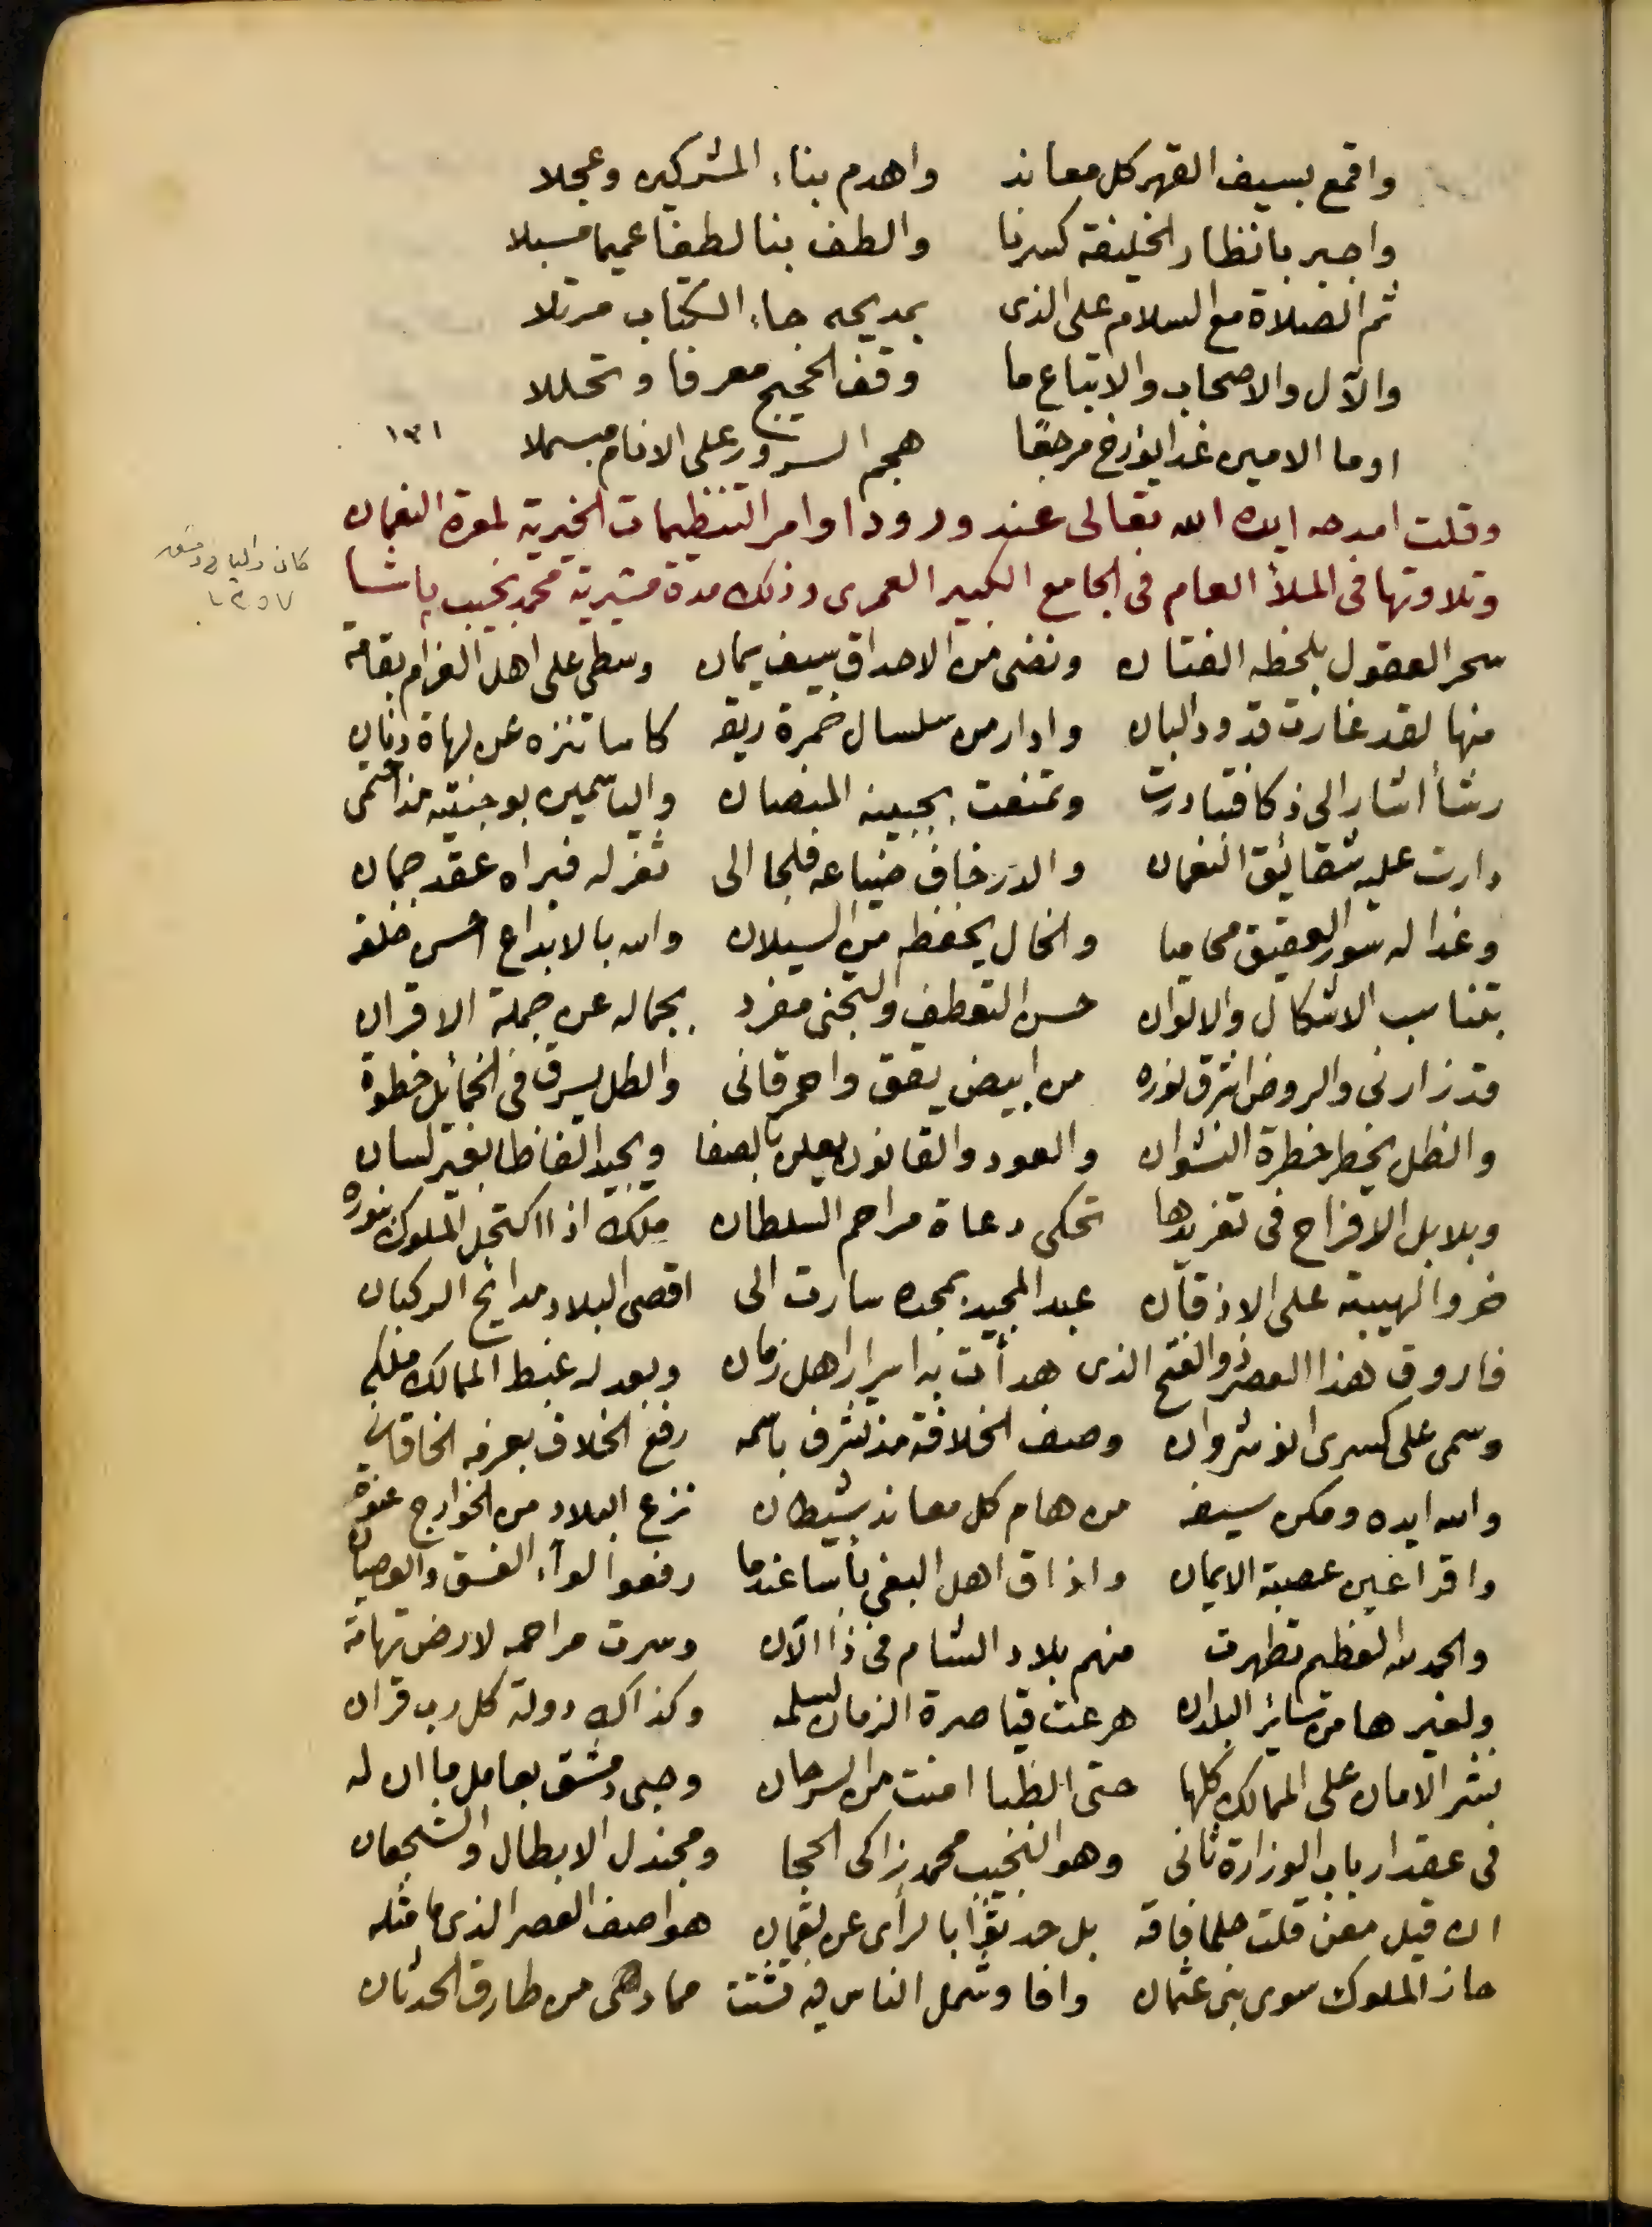 واقمع بسيف القهر كل معاند واهدم بناء المشركين وعجلا
واجبر بانظار الخليفة كسرنا والطف بنا لطفا عميما مسبلا
ثم الصلاة مع السلام على الذى بمديحه جاء الكتاب مرتلا
والآل والاصحاب والاتباع ما وقف الحجيج معرفا وتحللا
اوما الامين غدا يؤرخ مرجعا هجم السرور على الانام مبسملا
وقلت امدحه ايده الله تعالى عند ورود اوامر التنظيمات الخيرية لمعرة النعمان
وتلاوتها فى الملأ العام فى الجامع الكبير العمرى وذلك مدة مشيرية محمد نجيب پاشا
كان واليا فى دمشق
سحر العقول بلحظه الفتان ونضى من الاحداق سيف يمان وسطى على اهل الغرام بقامة
منها لقد غارت قدود البان وادار من سلسال خمرة ريقه كاسا تنزه عن لهاة دنان
رشأ اشار الى ذكا فتبادرت وتمنعت بجبينه المنصان والياسمين بوجنتيه مذ احتمى
دارت عليه شقائق النعمان والدر خاف ضياعه فلجا الى ثغر له فبراه عقد جمان
وغدا له سور العقيق محاميا والخال يحفظه من السيلان والله بالابداع احسن خلقه
بتناسب الاشكال والالوان حسن التعطف والتجنى مفرد بجماله عن جملة الاقران
قد زارنى والروض اشرق نوره من ابيض يقق واحمر قانى والطل يسرق فى الخمائل خطوة
والظل يخطر خطرة النشوان والعود والقانون يعلن بالصفا ويجيد الفاظا بغير لسان
وبلابل الافراح فى تغريدها تحكى دعاة مراحم السلطان ملك اذا اكتحل الملوك بنوره
خروا لهيبته على الاذقان عبد المجيد بمجده سارت الى اقصى البلاد مدائح الركبان
فاروق هذا العصر ذو الفتح الذى هدأت به اسرار اهل زمان وبعدله غبط الممالك ملكه
وسمى على كسرى انوشروان وصف الخلافة مذ تشرف باسمه رفع الخلاف بعرفه الخاقانى
والله ايده ومكن سيفه من هام كل معاند شيطان نزع البلاد من الخوارج عنوة
واقر اعين عصبة الايمان واذاق اهل البغى بأسا عندما رفعوا لوآء الفسق والعصيان
والحمد لله العظيم تطهرت منهم بلاد الشام فى ذا الآن وسرت مراحمه لارض تهامة
ولغيرها من سائر البلدان هرعت قياصرة الزمان لسلمه وكذاك دولة كل رب قران
نشر الامان على الممالك كلها حتى الظبا امنت من السرحان وحبى دمشق بعامل ما ان له
فى عقد ارباب الوزارة ثانى وهو النجيب محمد زاكى الحجا ومجندل الابطال والشجعان
ان قيل معن قلت حلما فاقه بل حدثوا بالرأى عن لقمان هو اصف العصر الذى ما مثله
حاز الملوك سوى بنى عثمان وافا وشمل الناس فيه تشتت مما دهى من طارق الحدثان